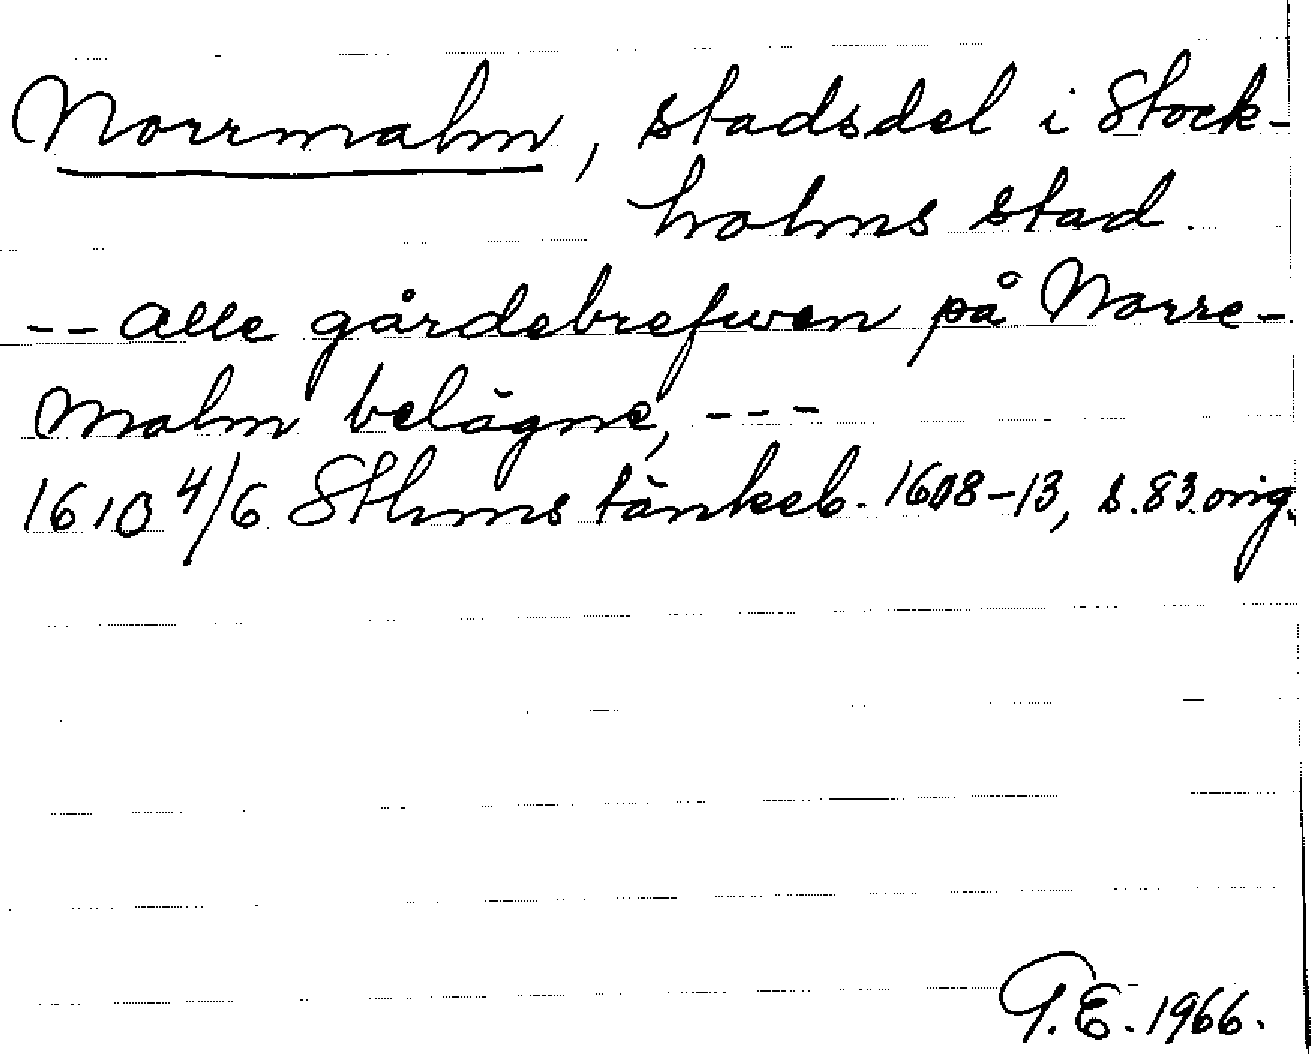 Norrmalm, stadsdel i Stock-
holms stad.
-- alle gårdebrefwen på Norre-
malm belägne, ---
1610 4/6 Sthms tänkeb. 1608-13, s.83 orig.
G.E. 1966.